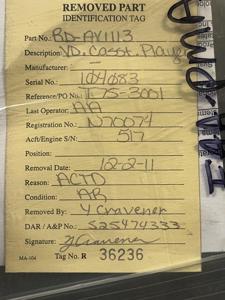 REMOVED PART
IDENTIFICATION TAG
Part No.: RD-AX1113
Description: VD. Casst. Player
Manufacturer: –
Serial No.: 104083
Reference/PO No.: T-75-3001
Last Operator: AA
Registration No.: N70074
Acft/Engine S/N: 517
Position:
Removal Date: 12-2-11
Reason: ACTD
Condition: AR
Removed By: Y Cravener
DAR / A&P No.: 525474333
Signature: Y Cravener
MA-104 Tag No. R 36236